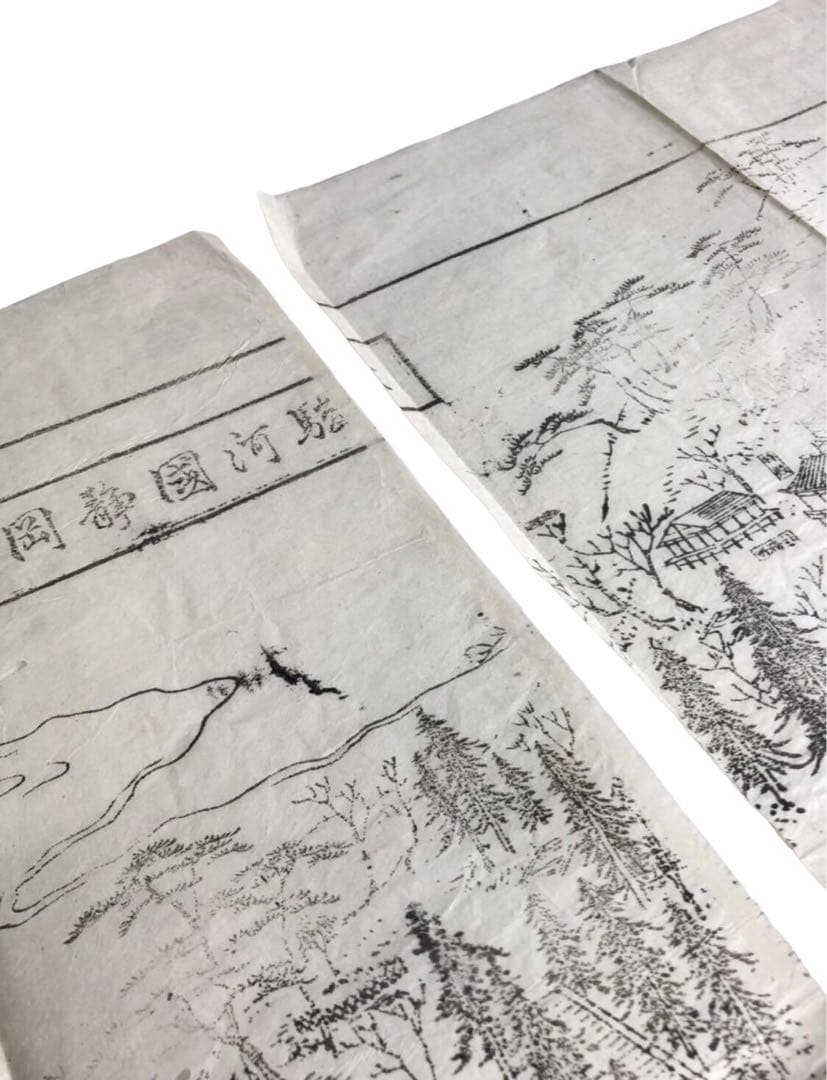 駿河國靜岡